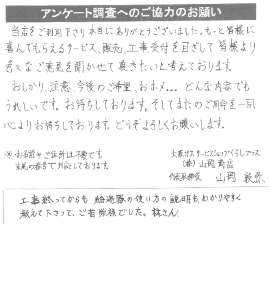 アンケート調査へのご協力のお願い
当店をご利用下さり本日にありがとうございました。もっと皆様に
喜んでもらえるサービス、販売、工事受付を目ざして皆様より
ご意見を聞かせて頂きたいと考えております。
おしかり、誤意、今後のご希望、おホメ... どんな内容でも
うれしいです。お待ちしております。そしてまたのご用命を一同
心よりお待ちしております。どうぞよろしくお願いします。
※お名前やご住所は不要です
大阪ガスサービスショップ
(株)山岡
山岡
工事終ってからも給湯器の使い方の説明もわかりやすく
教えて下さって、ご苦労様でした。